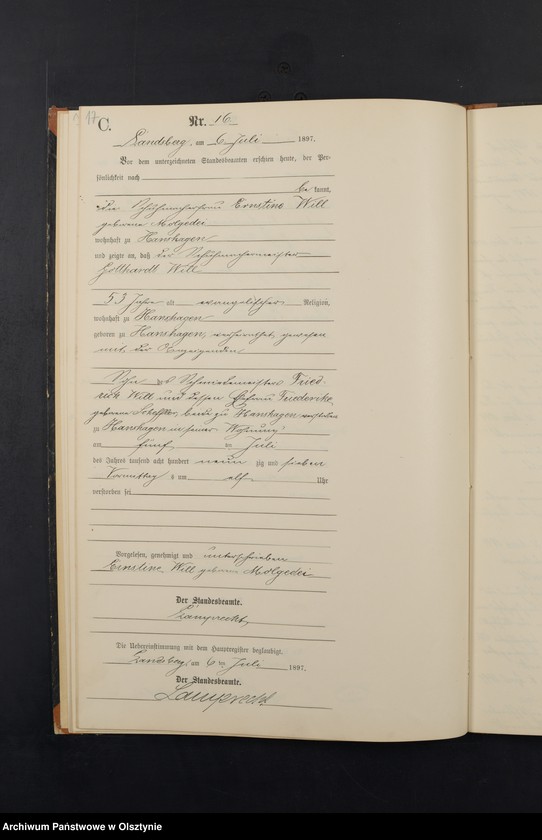 17
C.
Nr. 16
Landsberg, am 6. Juli 1897.
Vor dem unterzeichneten Standesbeamten erschien heute, der Per-
sönlichkeit nach
be kannt,
die Schuhmacherfrau Ernstine Will
geborene Molgedei
wohnhaft zu Hanshagen
und zeigte an, daß der Schuhmachermeister
Gotthardt Will
53 Jahre alt evangelischer Religion,
wohnhaft zu Hanshagen
geboren zu Hanshagen, verheirathet gewesen
mit der Anzeigenden
Sohn des Schmiedemeisters Fried-
rich Will und dessen Ehefrau Friederike,
geborene beide zu Hanshagen verstorben
zu Hanshagen in seiner Wohnung
am fünf ten Juli
des Jahres tausend acht hundert neun zig und sieben
Vormittags um elf Uhr
verstorben sei
Vorgelesen, genehmigt und unterschrieben
Ernstine Will geborene Molgedei
Der Standesbeamte.
Lamprecht
Die Uebereinstimmung mit dem Hauptregister beglaubigt.
Landsberg, am 6ten Juli 1897.
Der Standesbeamte.
Lamprecht
Archiwum Państwowe w Olsztynie